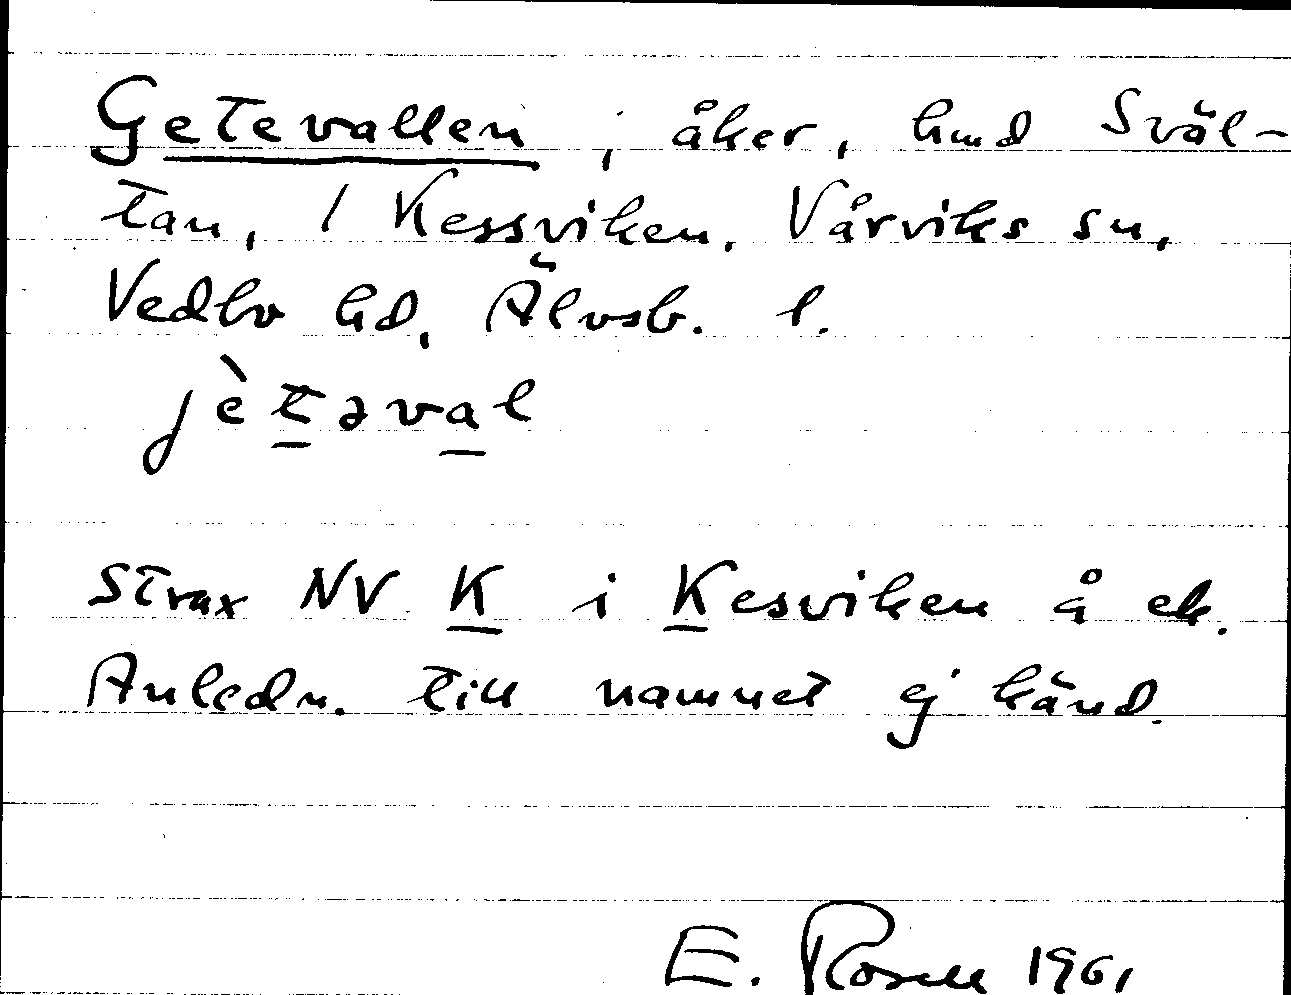 Getevallen, åker, hmd Sväl-
tan, 1 Kessviken. Vårviks sn,
Vedbo hd, Älvsb. l.
jètəval
Strax NV K i Kesviken å ek.
Anledn. till namnet ej känd.
E. Rosell 1961